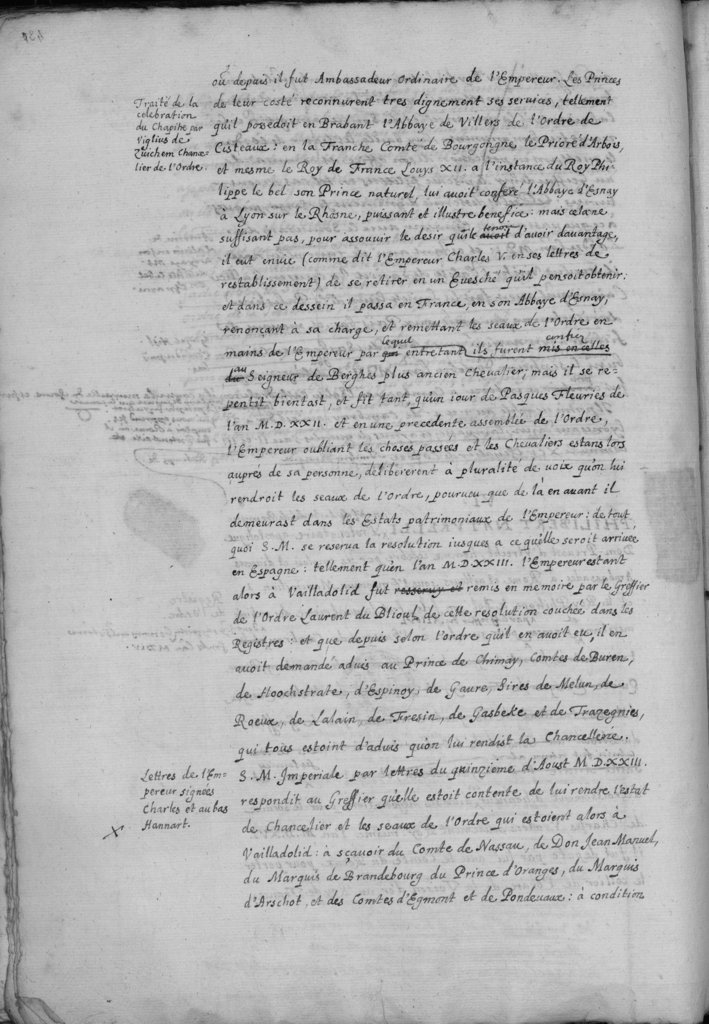 où depuis il fut Ambassadeur ordinaire de l'Empereur. Les Princes
de leur costé reconnurent tres dignement ses services, tellement
qu'il possedoit en Brabant l'Abbaye de Villers de l'Ordre de
Cisteaux: en la Franche Comté de Bourgongne le Prioré d'Arbois,
et mesme le Roy de France Louys XII. a l'instance du Roy Phi-
lippe le bel son Prince naturel, lui avoit conferé l'Abbaye d'Esnay
à Lyon sur le Rhosne, puissant et illustre benefice: mais cela ne
suffisant pas, pour assouvir le desir qu'il avoit d'avoir davantage,
il eut envie (comme dit l'Empereur Charles V. en ses lettres de
restablissement) de se retirer en un Euesché qu'il pensoit obtenir:
et dans ce dessein il passa en France, en son Abbaye d'Esnay,
renonçant à sa charge, et remettant les seaux de l'Ordre en
mains de l'Empereur par lequel entretant ils furent mis en celles
du au Seigneur de Berghes plus ancien Chevalier; mais il se re-
pentit bientost, et fit tant qu'un iour de Pasques Fleuries de
l'an M.D.XXII. et en une precedente assemblée de l'Ordre,
l'Empereur oubliant les choses passées et les Chevaliers estans lors
auprés de sa personne, delibererent à pluralité de voix qu'on lui
rendroit les seaux de l'Ordre, pourueu que de là en avant il
demeurast dans les Estats patrimoniaux de l'Empereur: de tout
quoi S.M. se reserva la resolution iusques a ce qu'elle seroit arrivée
en Espagne: tellement qu'en l'an M.D.XXIII. l'Empereur estant
alors à Vailladolid fut remis en memoire par le Greffier
de l'Ordre Laurent du Blioul de cette resolution couchée dans les
Registres: et que depuis selon l'ordre qu'il en avoit eu, il en
avoit demandé advis au Prince de Chimay, Comtes de Buren,
de Hoochstrate, d'Espinoy, de Gavre, Sires de Melun, de
Roeux, de Lalain, de Fresin, de Gasbeke et de Trazegnies,
qui tous estoint d'advis qu'on lui rendist la Chancellerie.
S.M. Imperiale par lettres du quinziéme d'Aoust M.D.XXIII.
respondit au Greffier qu'elle estoit contente de lui rendre l'estat
de Chancelier et les seaux de l'Ordre qui estoient alors à
Vailladolid: à sçavoir du Comte de Nassau, de Don Jean Manuel,
du Marquis de Brandebourg du Prince d'Oranges, du Marquis
d'Arschot, et des Comtes d'Egmont et de Pondevaux: à condition
Traité de la
celebration
du Chapitre par
Viglius de
Zuichem Chance-
lier de l'Ordre.
Lettres de l'Em-
pereur signées
Charles et au bas
Hannart.